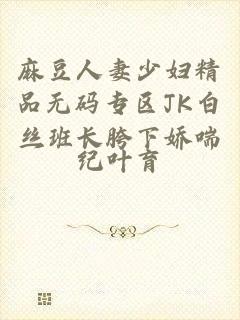 麻豆人妻少妇精
品无码专区JK白
丝班长胯下娇喘
纪叶育